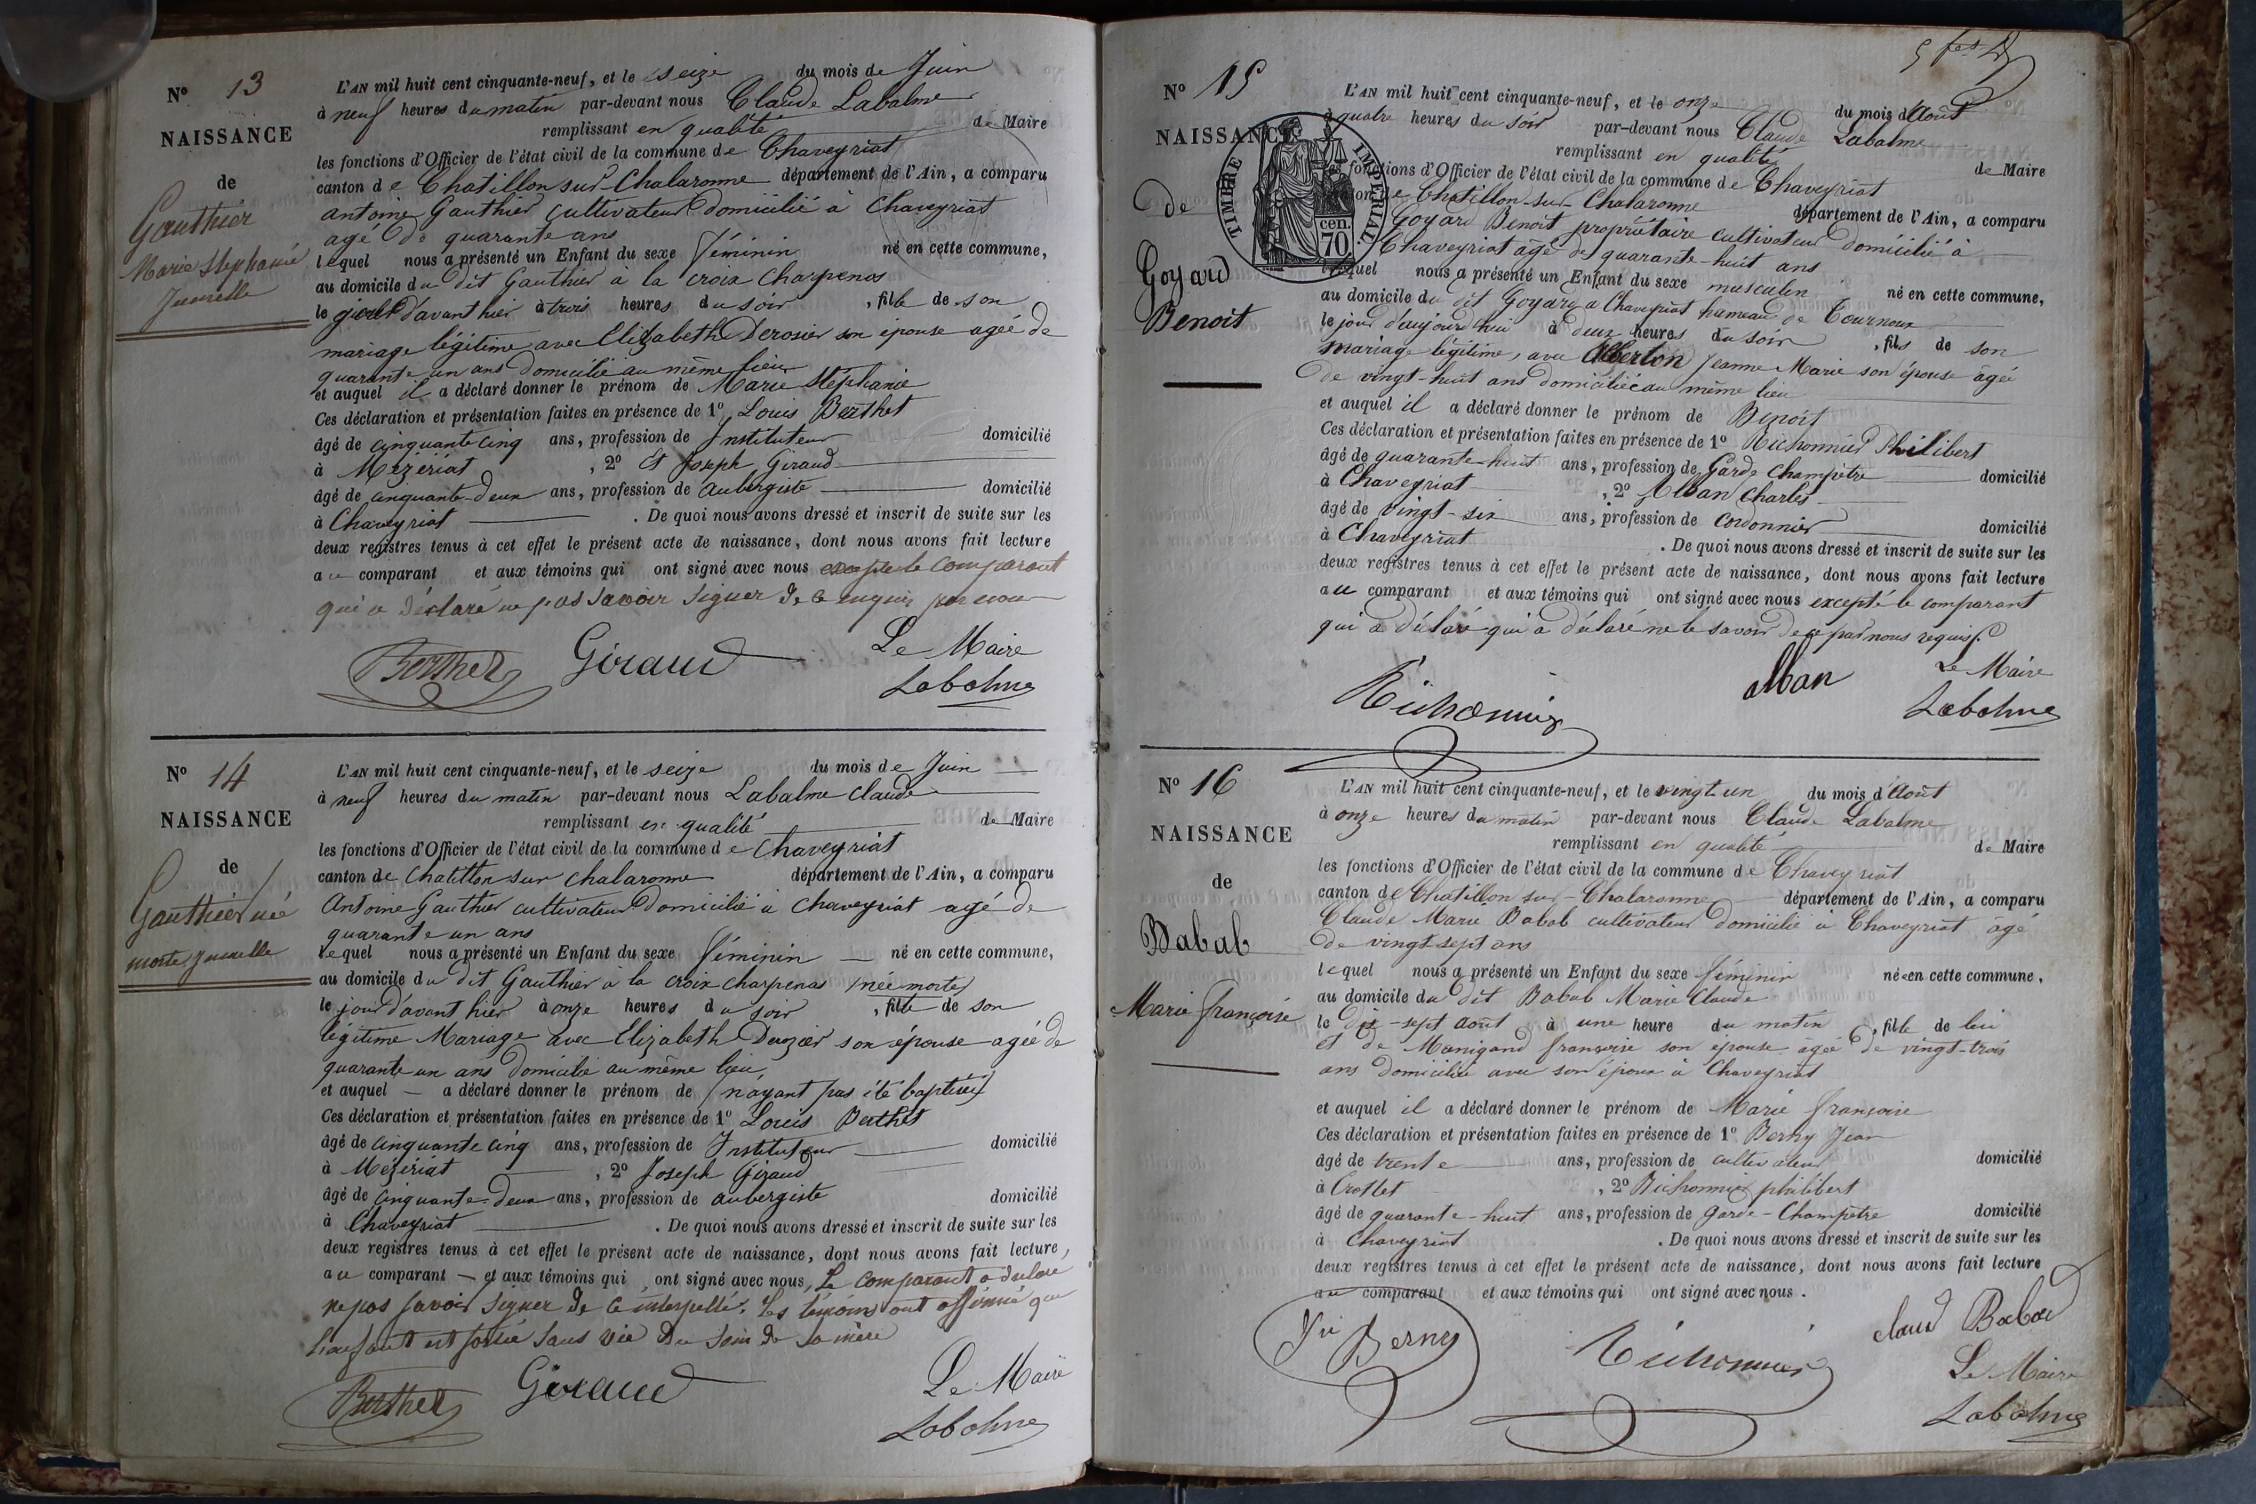 N° 13
NAISSANCE
de
Gauthier
Marie Stéphanie
Jumelle
L'AN mil huit cent cinquante-neuf, et le seize du mois de Juin
à neuf heures du matin par-devant nous Claude Labalme
remplissant en qualité de Maire
les fonctions d'Officier de l'état civil de la commune de Chaveyriat
canton de Chatillon sur Chalaronne département de l'Ain, a comparu
antoine Gauthier cultivateur domicilié à Chaveyriat
agé de quarante ans
lequel nous a présenté un Enfant du sexe féminin né en cette commune,
au domicile du dit Gauthier à la croix Charpenas
le jour d'avant hier à trois heures du soir, fille de son
mariage légitime avec Elizabeth Derosier son épouse agée de
quarante un ans domicilié au même lieu
et auquel il a déclaré donner le prénom de Marie Stéphanie
Ces déclaration et présentation faites en présence de 1° Louis Berthet
âgé de cinquante cinq ans, profession de Instituteur domicilié
à Mézériat, 2° et Joseph Giraud
âgé de cinquante-deux ans, profession de aubergiste domicilié
à Chaveyriat. De quoi nous avons dressé et inscrit de suite sur les
deux registres tenus à cet effet le présent acte de naissance, dont nous avons fait lecture
au comparant et aux témoins qui ont signé avec nous excepté le comparant
qui a déclaré ne pas savoir signer de ce requis par nous
Berthet Giraud Le Maire
Labalme
N° 14
NAISSANCE
de
Gauthier née
morte jumelle
L'AN mil huit cent cinquante-neuf, et le seize du mois de Juin
à neuf heures du matin par-devant nous Labalme Claude
remplissant en qualité de Maire
les fonctions d'Officier de l'état civil de la commune de Chaveyriat
canton de Chatillon sur Chalaronne département de l'Ain, a comparu
Antoine Gauthier cultivateur domicilié à Chaveyriat agé de
quarante un ans
lequel nous a présenté un Enfant du sexe féminin né en cette commune,
au domicile du dit Gauthier à la croix Charpenas (née morte)
le jour d'avant hier à onze heures du soir, fille de son
légitime Mariage avec Elizabeth Derozier son épouse agée de
quarante un ans domicilié au même lieu
et auquel — a déclaré donner le prénom de (n'ayant pas été baptisée)
Ces déclaration et présentation faites en présence de 1° Louis Berthet
âgé de cinquante cinq ans, profession de Instituteur domicilié
à Mézériat, 2° Joseph Giraud
âgé de cinquante-deux ans, profession de aubergiste domicilié
à Chaveyriat. De quoi nous avons dressé et inscrit de suite sur les
deux registres tenus à cet effet le présent acte de naissance, dont nous avons fait lecture,
au comparant — et aux témoins qui ont signé avec nous, Le comparant a déclaré
ne pas savoir signer de ce interpellé. Les témoins ont affirmé que
l'enfant est sortie sans vie du sein de sa mère
Berthet Giraud Le Maire
Labalme
N° 15
NAISSANCE
de
Goyard
Benoit
TIMBRE IMPÉRIAL
70 cen.
L'AN mil huit cent cinquante-neuf, et le onze du mois d'Août
à quatre heures du soir par-devant nous Claude Labalme
remplissant en qualité de Maire
les fonctions d'Officier de l'état civil de la commune de Chaveyriat
canton de Chatillon-sur-Chalaronne département de l'Ain, a comparu
Goyard Benoit propriétaire cultivateur domicilié à
Chaveyriat âgé de quarante-huit ans
lequel nous a présenté un Enfant du sexe masculin né en cette commune,
au domicile du dit Goyard a Chaveyriat hameau de Tournoux
le jour d'aujourd'hui à deux heures du soir, fils de son
mariage légitime, avec Alberton Jeanne Marie son épouse âgée
de vingt-huit ans domiciliée au même lieu
et auquel il a déclaré donner le prénom de Benoit
Ces déclaration et présentation faites en présence de 1° Richonnier Philibert
âgé de quarante-huit ans, profession de Garde champêtre domicilié
à Chaveyriat, 2° Alban Charles
âgé de vingt-six ans, profession de cordonnier domicilié
à Chaveyriat. De quoi nous avons dressé et inscrit de suite sur les
deux registres tenus à cet effet le présent acte de naissance, dont nous avons fait lecture
au comparant et aux témoins qui ont signé avec nous excepté le comparant
qui a déclaré qui a déclaré ne le savoir de ce par nous requis.
Richonnier Alban Le Maire
Labalme
N° 16
NAISSANCE
de
Babab
Marie françoise
L'AN mil huit cent cinquante-neuf, et le vingt un du mois d'Août
à onze heures du matin par-devant nous Claude Labalme
remplissant en qualité de Maire
les fonctions d'Officier de l'état civil de la commune de Chaveyriat
canton de Chatillon sur-Chalaronne département de l'Ain, a comparu
Claude Marie Babab cultivateur domicilié à Chaveyriat âgé
de vingt sept ans
lequel nous a présenté un Enfant du sexe féminin née en cette commune,
au domicile du dit Babab Marie Claude
le dix-sept Août à une heure du matin, fille de lui
et de Manigand françoise son épouse âgée de vingt-trois
ans domiciliée avec son époux à Chaveyriat
et auquel il a déclaré donner le prénom de Marie françoise
Ces déclaration et présentation faites en présence de 1° Berny Jean
âgé de trente ans, profession de cultivateur domicilié
à Crottet, 2° Richonnier philibert
âgé de quarante-huit ans, profession de Garde-Champêtre domicilié
à Chaveyriat. De quoi nous avons dressé et inscrit de suite sur les
deux registres tenus à cet effet le présent acte de naissance, dont nous avons fait lecture
au comparant et aux témoins qui ont signé avec nous.
Berny Richonnier claud Babad
Le Maire
Labalme